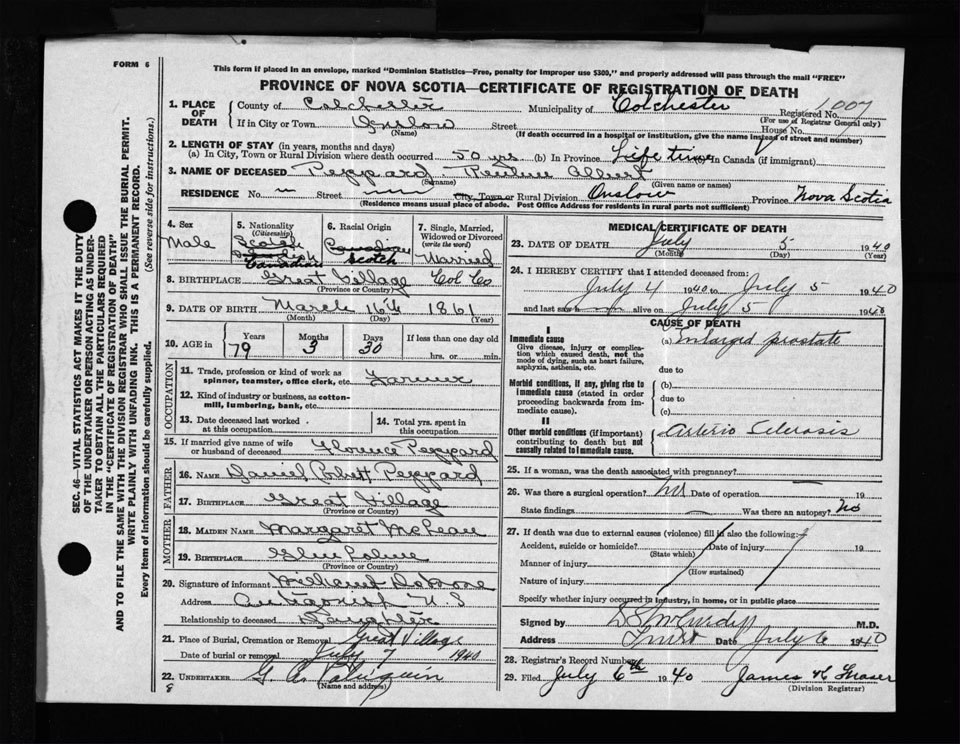 FORM 6
This form if placed in an envelope, marked "Dominion Statistics—Free, penalty for improper use $300," and properly addressed will pass through the mail "FREE"
PROVINCE OF NOVA SCOTIA—CERTIFICATE OF REGISTRATION OF DEATH
1. PLACE OF DEATH County of Colchester Municipality of Colchester Registered No. 1007
(For use of Registrar General only)
If in City or Town Onslow Street House No.
(Name) (If death occurred in a hospital or institution, give the name instead of street and number)
2. LENGTH OF STAY (in years, months and days)
(a) In City, Town or Rural Division where death occurred 50 yrs. (b) In Province Life time (c) In Canada (if immigrant)
3. NAME OF DECEASED Peppard Albert
(Surname) (Given name or names)
RESIDENCE No. — Street City, Town or Rural Division Onslow Province Nova Scotia
(Residence means usual place of abode. Post Office Address for residents in rural parts not sufficient)
4. Sex Male
5. Nationality (Citizenship) Scotch Canadian
6. Racial Origin Canadian Scotch
7. Single, Married, Widowed or Divorced (write the word) Married
8. BIRTHPLACE Great Village Col Co
(Province or Country)
9. DATE OF BIRTH March 16th 1861
(Month) (Day) (Year)
10. AGE in Years 79 Months 3 Days 20 If less than one day old hrs. or min.
OCCUPATION
11. Trade, profession or kind of work as spinner, teamster, office clerk, etc. Farmer
12. Kind of industry or business, as cotton-mill, lumbering, bank, etc.
13. Date deceased last worked at this occupation
14. Total yrs. spent in this occupation
15. If married give name of wife or husband of deceased Florence Peppard
FATHER
16. NAME Daniel Peppard
17. BIRTHPLACE Great Village
(Province or Country)
MOTHER
18. MAIDEN NAME Margaret McLean
19. BIRTHPLACE
(Province or Country)
20. Signature of informant
Address Antigonish N S
Relationship to deceased Daughter
21. Place of Burial, Cremation or Removal Great Village
Date of burial or removal July 7 1940
22. UNDERTAKER G. A.
(Name and address)
8
MEDICAL CERTIFICATE OF DEATH
23. DATE OF DEATH July 5 1940
(Month) (Day) (Year)
24. I HEREBY CERTIFY that I attended deceased from:
July 4 1940 to July 5 1940
and last saw h alive on July 5 1940
CAUSE OF DEATH
I
Immediate cause
Give disease, injury or complication which caused death, not the mode of dying, such as heart failure, asphyxia, asthenia, etc.
(a) Enlarged prostate
due to
Morbid conditions, if any, giving rise to immediate cause (stated in order proceeding backwards from immediate cause).
(b)
due to
(c)
II
Other morbid conditions (if important) contributing to death but not causally related to immediate cause.
Arterio Sclerosis
25. If a woman, was the death associated with pregnancy?
26. Was there a surgical operation? No Date of operation — 19
State findings — Was there an autopsy? No
27. If death was due to external causes (violence) fill in also the following:
Accident, suicide or homicide? Date of injury 19
(State which)
Manner of injury
(How sustained)
Nature of injury
Specify whether injury occurred in industry, in home, or in public place
Signed by M.D.
Address Truro Date July 6 1940
28. Registrar's Record Number
29. Filed July 6th 1940 James K Fraser
(Division Registrar)
SEC. 46—VITAL STATISTICS ACT MAKES IT THE DUTY
OF THE UNDERTAKER OR PERSON ACTING AS UNDER-
TAKER TO OBTAIN ALL THE PARTICULARS REQUIRED
IN THE "CERTIFICATE OF REGISTRATION OF DEATH"
AND TO FILE THE SAME WITH THE DIVISION REGISTRAR WHO SHALL ISSUE THE BURIAL PERMIT.
WRITE PLAINLY WITH UNFADING INK. THIS IS A PERMANENT RECORD.
Every item of information should be carefully supplied. (See reverse side for instructions.)